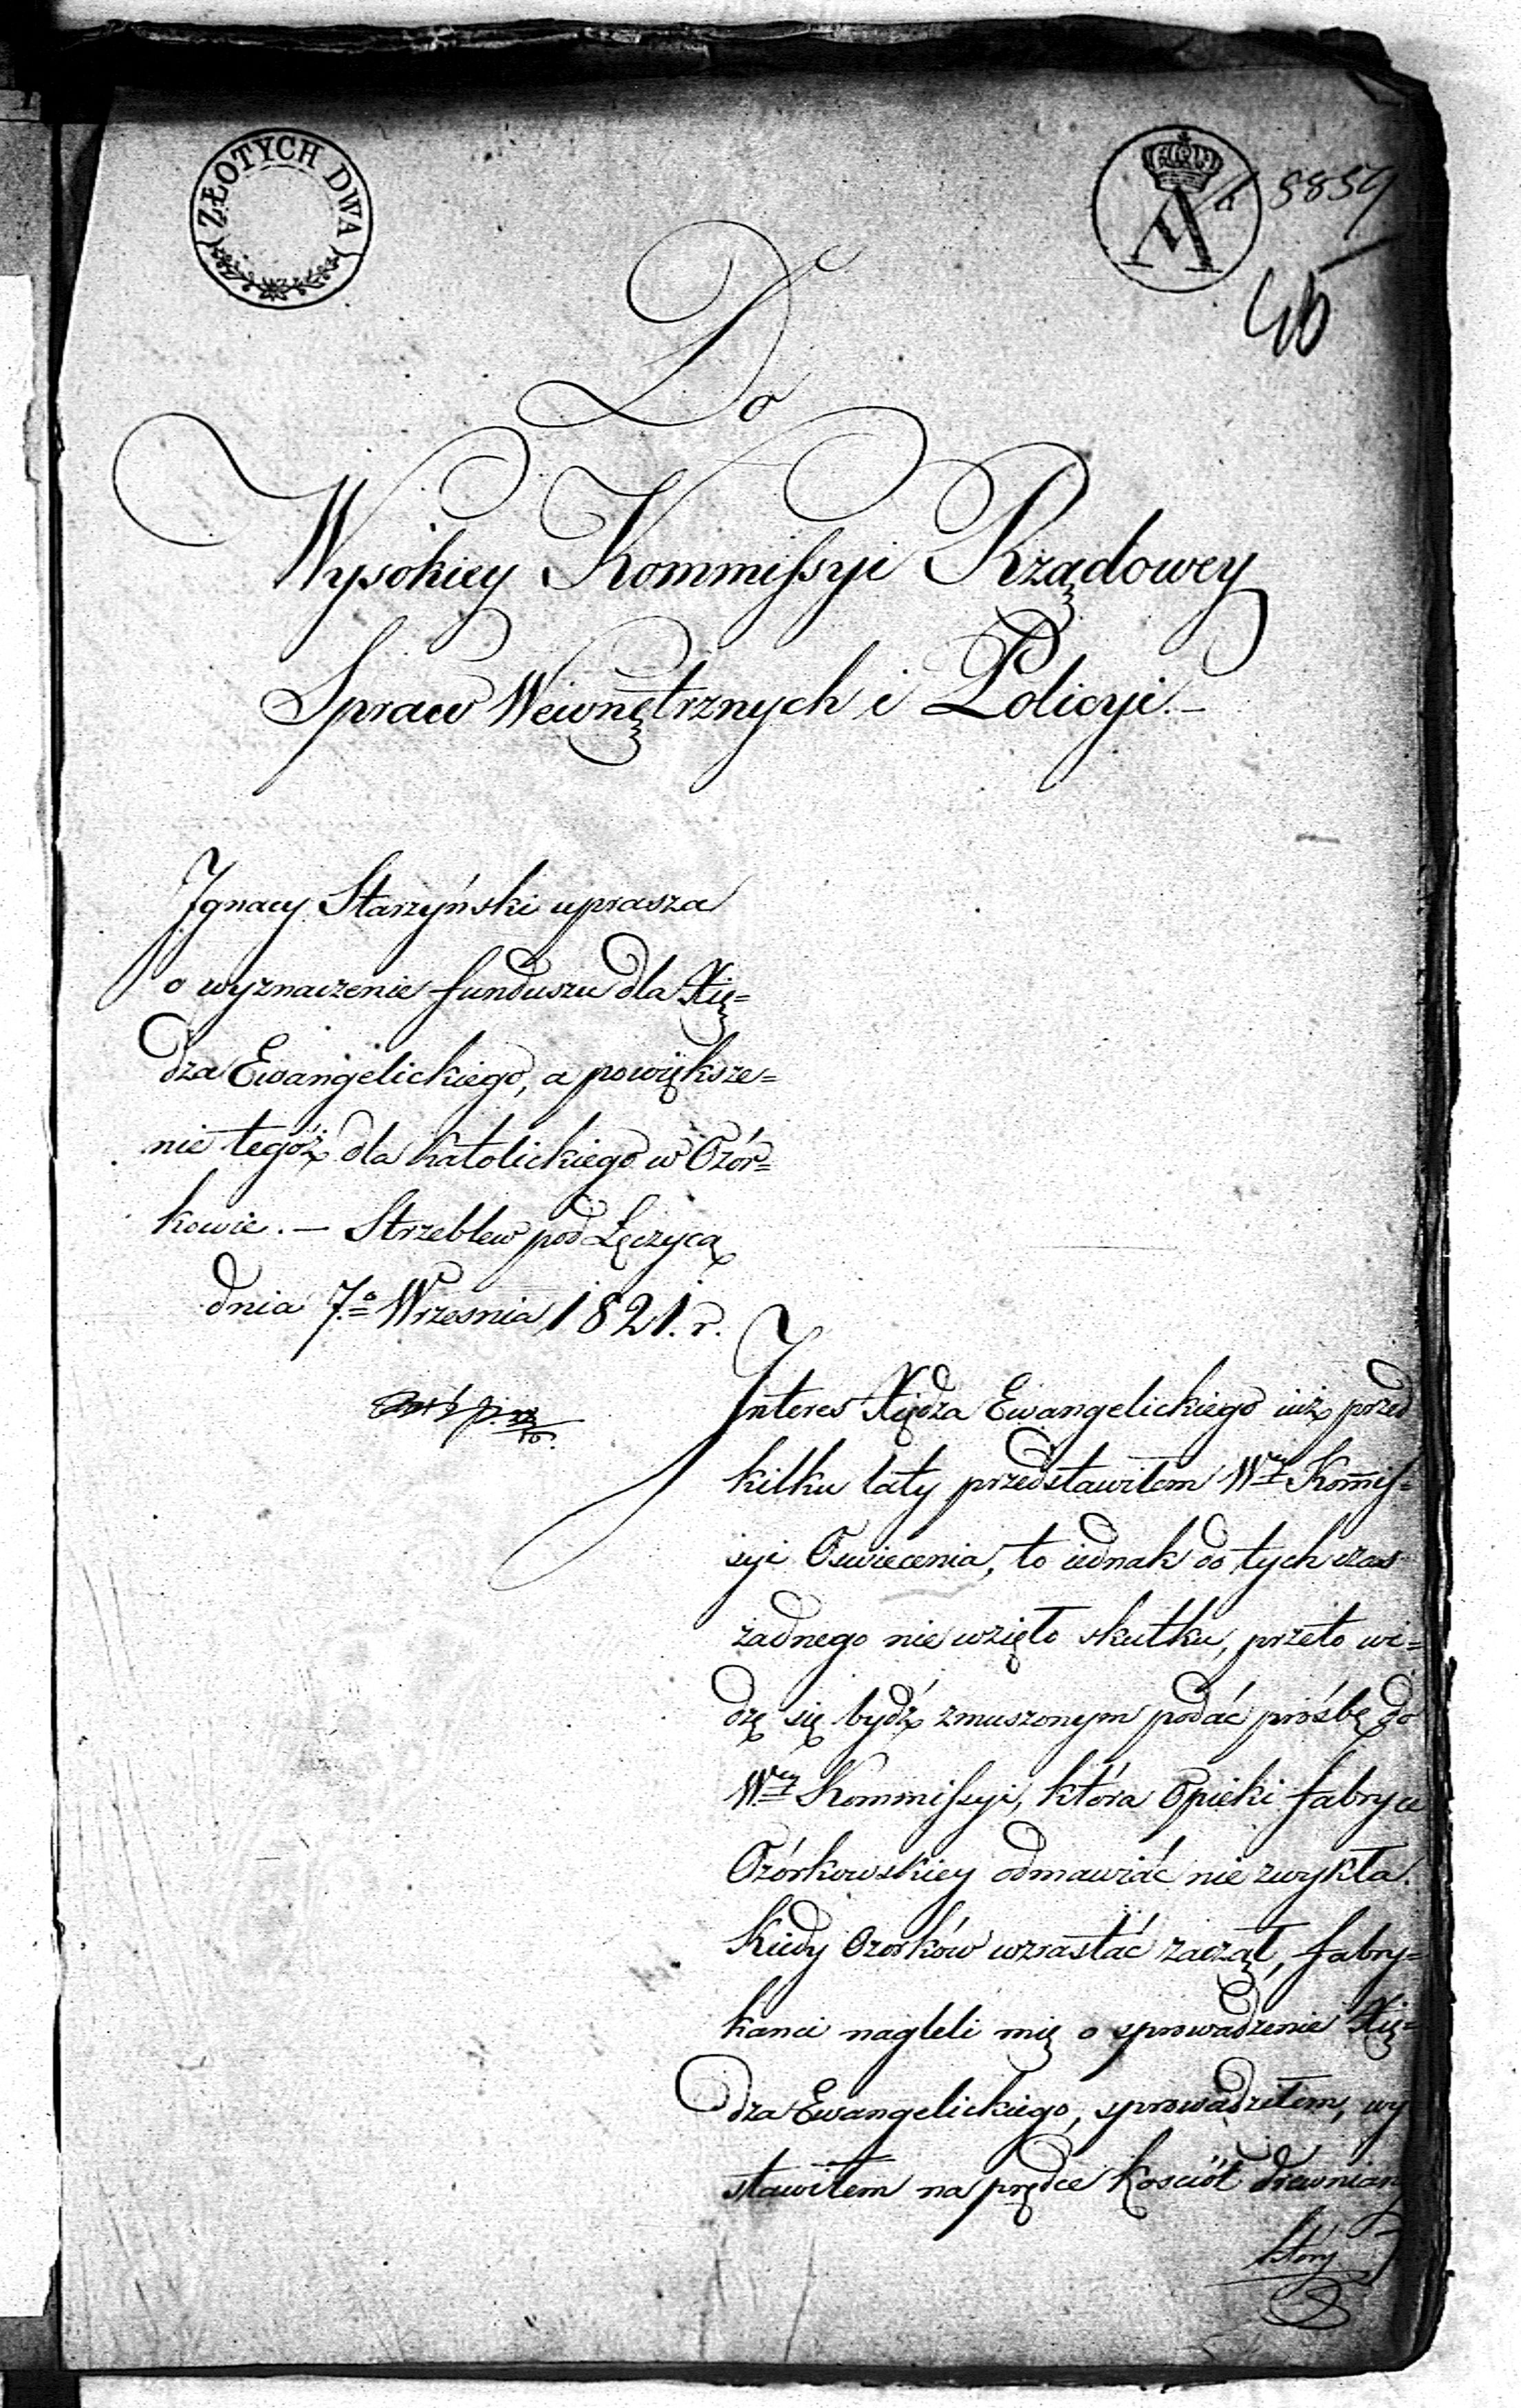 ZŁOTYCH DWA
5859
Do
Wysokiey Kommissyi Rządowey
Spraw Wewnętrznych i Policyi.—
Ignacy Starzyński uprasza
o wyznaczenie funduszu dla Xię=
dza Ewangelickiego, a powiększe=
nie tegóż dla Katolickiego w Ozór=
kowie. — Strzeblew pod Łęczycą
dnia 7º Wrzesnia 1821. r.
Interes Xiędza Ewangelickiego iuż przed
kilku laty przedstawiłem Wéy Kom̄is=
syi Oswiecenia, to iednak do tych czas
żadnego nie wzięło skutku, przeto wi=
dzę się bydź zmuszonym podáć prośbę do
Wéy Kommissyi, która Opieki fabryce
Ozórkowskiey odmawiáć nie zwykła.
Kiedy Ozorków wzrastáć zaczął, fabry=
kanci nagleli mię o sprowadzenie Xię=
dza Ewangelickiego, sprowadziłem, wy
stawiłem na prędce Kościół drewniany
który